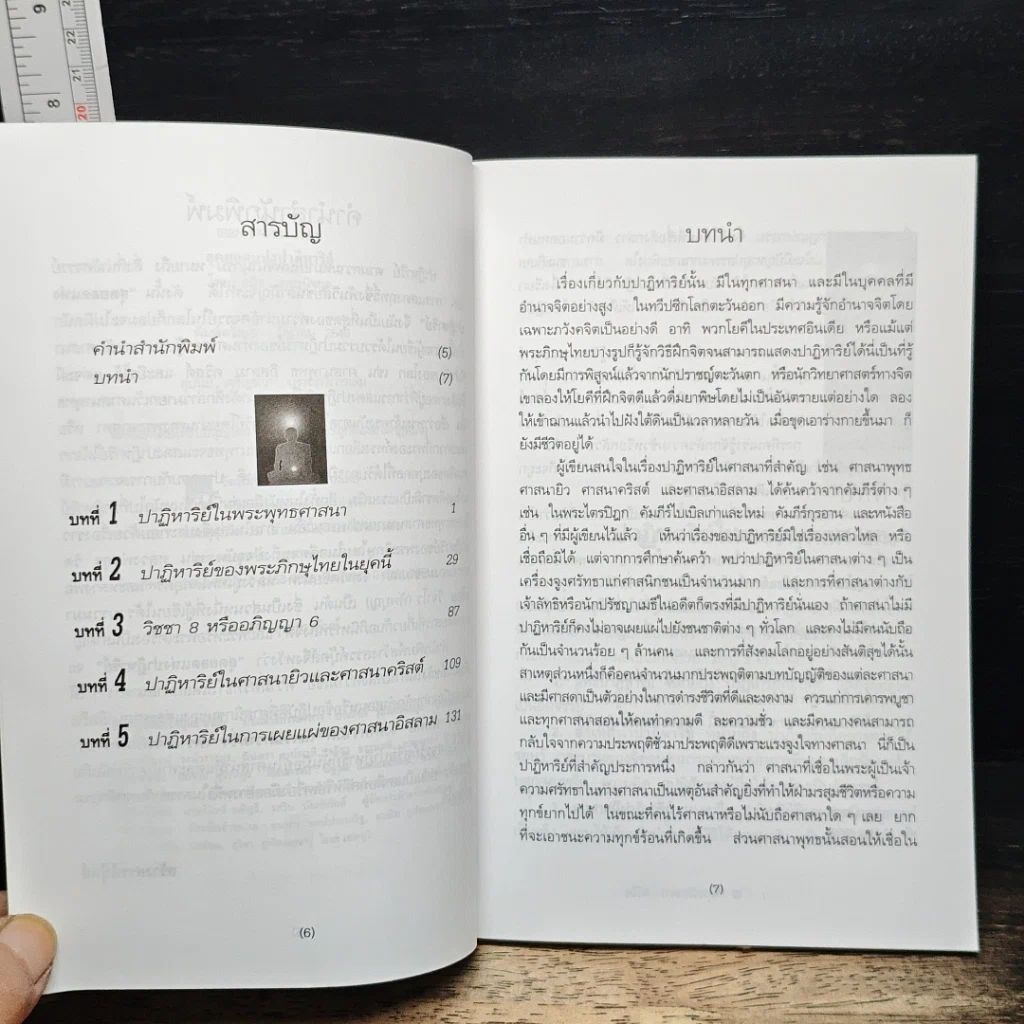 9
8
22
21
20
สารบัญ
คำนำสำนักพิมพ์ (5)
บทนำ (7)
บทที่ 1 ปาฏิหาริย์ในพระพุทธศาสนา 1
บทที่ 2 ปาฏิหาริย์ของพระภิกษุไทยในยุคนี้ 29
บทที่ 3 วิชชา 8 หรืออภิญญา 6 87
บทที่ 4 ปาฏิหาริย์ในศาสนายิวและศาสนาคริสต์ 109
บทที่ 5 ปาฏิหาริย์ในการเผยแผ่ของศาสนาอิสลาม 131
(6)
บทนำ
เรื่องเกี่ยวกับปาฏิหาริย์นั้น มีในทุกศาสนา และมีในบุคคลที่มี
อำนาจจิตอย่างสูง ในทวีปซีกโลกตะวันออก มีความรู้จักอำนาจจิตโดย
เฉพาะภวังคจิตเป็นอย่างดี อาทิ พวกโยคีในประเทศอินเดีย หรือแม้แต่
พระภิกษุไทยบางรูปก็รู้จักวิธีฝึกจิตจนสามารถแสดงปาฏิหาริย์ได้นี้เป็นที่รู้
กันโดยมีการพิสูจน์แล้วจากนักปราชญ์ตะวันตก หรือนักวิทยาศาสตร์ทางจิต
เขาลองให้โยคีที่ฝึกจิตดีแล้วดื่มยาพิษโดยไม่เป็นอันตรายแต่อย่างใด ลอง
ให้เข้าฌานแล้วนำไปฝังใต้ดินเป็นเวลาหลายวัน เมื่อขุดเอาร่างกายขึ้นมา ก็
ยังมีชีวิตอยู่ได้
ผู้เขียนสนใจในเรื่องปาฏิหาริย์ในศาสนาที่สำคัญ เช่น ศาสนาพุทธ
ศาสนายิว ศาสนาคริสต์ และศาสนาอิสลาม ได้ค้นคว้าจากคัมภีร์ต่าง ๆ
เช่น ในพระไตรปิฎก คัมภีร์ไบเบิลเก่าและใหม่ คัมภีร์กุรอาน และหนังสือ
อื่น ๆ ที่มีผู้เขียนไว้แล้ว เห็นว่าเรื่องของปาฏิหาริย์มิใช่เรื่องเหลวไหล หรือ
เชื่อถือมิได้ แต่จากการศึกษาค้นคว้า พบว่าปาฏิหาริย์ในศาสนาต่าง ๆ เป็น
เครื่องจูงศรัทธาแก่ศาสนิกชนเป็นจำนวนมาก และการที่ศาสนาต่างกับ
เจ้าลัทธิหรือนักปรัชญาเมธีในอดีตก็ตรงที่มีปาฏิหาริย์นั่นเอง ถ้าศาสนาไม่มี
ปาฏิหาริย์ก็คงไม่อาจเผยแผ่ไปยังชนชาติต่าง ๆ ทั่วโลก และคงไม่มีคนนับถือ
กันเป็นจำนวนร้อย ๆ ล้านคน และการที่สังคมโลกอยู่อย่างสันติสุขได้นั้น
สาเหตุส่วนหนึ่งก็คือคนจำนวนมากประพฤติตามบทบัญญัติของแต่ละศาสนา
และมีศาสดาเป็นตัวอย่างในการดำรงชีวิตที่ดีและงดงาม ควรแก่การเคารพบูชา
และทุกศาสนาสอนให้คนทำความดี ละความชั่ว และมีคนบางคนสามารถ
กลับใจจากความประพฤติชั่วมาประพฤติดีเพราะแรงจูงใจทางศาสนา นี่ก็เป็น
ปาฏิหาริย์ที่สำคัญประการหนึ่ง กล่าวกันว่า ศาสนาที่เชื่อในพระผู้เป็นเจ้า
ความศรัทธาในทางศาสนาเป็นเหตุอันสำคัญยิ่งที่ทำให้ฝ่ามรสุมชีวิตหรือความ
ทุกข์ยากไปได้ ในขณะที่คนไร้ศาสนาหรือไม่นับถือศาสนาใด ๆ เลย ยาก
ที่จะเอาชนะความทุกข์ร้อนที่เกิดขึ้น ส่วนศาสนาพุทธนั้นสอนให้เชื่อใน
(7)